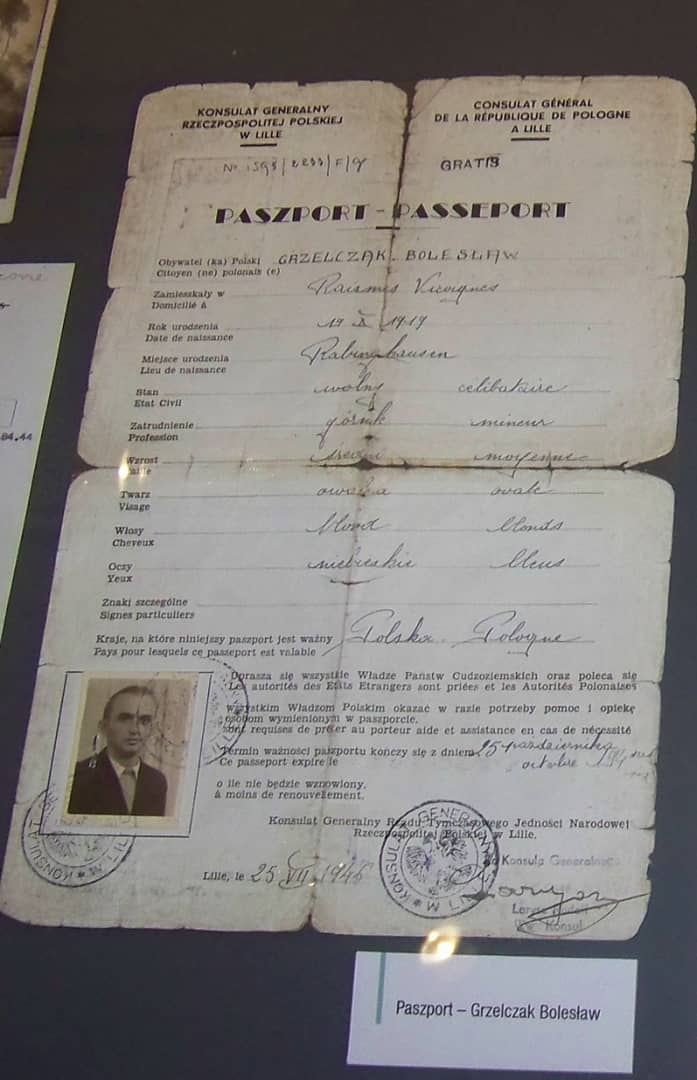 KONSULAT GENERALNY
RZECZPOSPOLITEJ POLSKIEJ
W LILLE
CONSULAT GÉNÉRAL
DE LA RÉPUBLIQUE DE POLOGNE
A LILLE
GRATIS
PASZPORT - PASSEPORT
Obywatel (ka) Polski GRZELCZAK BOLESŁAW
Citoyen (ne) polonais (e)
Zamieszkały w Raismes Vicoignes
Domicilié à
Rok urodzenia 19 X 1919
Date de naissance
Miejsce urodzenia
Lieu de naissance
Stan wolny célibataire
Etat Civil
Zatrudnienie górnik mineur
Profession
Wzrost średni moyenne
Twarz owalna ovale
Visage
Włosy blond blonds
Cheveux
Oczy niebieskie bleus
Yeux
Znaki szczególne
Signes particuliers
Kraje, na które niniejszy paszport jest ważny Polska - Pologne
Pays pour lesquels ce passeport est valable
Uprasza się wszystkie Władze Państw Cudzoziemskich oraz poleca się
Les autorités des Etats Etrangers sont priées et les Autorités Polonaises
wszystkim Władzom Polskim okazać w razie potrzeby pomoc i opiekę
osobom wymienionym w paszporcie.
sont requises de prêter au porteur aide et assistance en cas de nécessité
Termin ważności paszportu kończy się z dniem 25 października
Ce passeport expire le octobre
o ile nie będzie wznowiony.
à moins de renouvellement.
Konsulat Generalny Rządu Tymczasowego Jedności Narodowej
Rzeczpospolitej Polskiej w Lille.
Lille, le 25 VII 1946
KONSULAT GENERALNY W LILLE
Konsula Generalnego
Konsul
84.44
Paszport – Grzelczak Bolesław